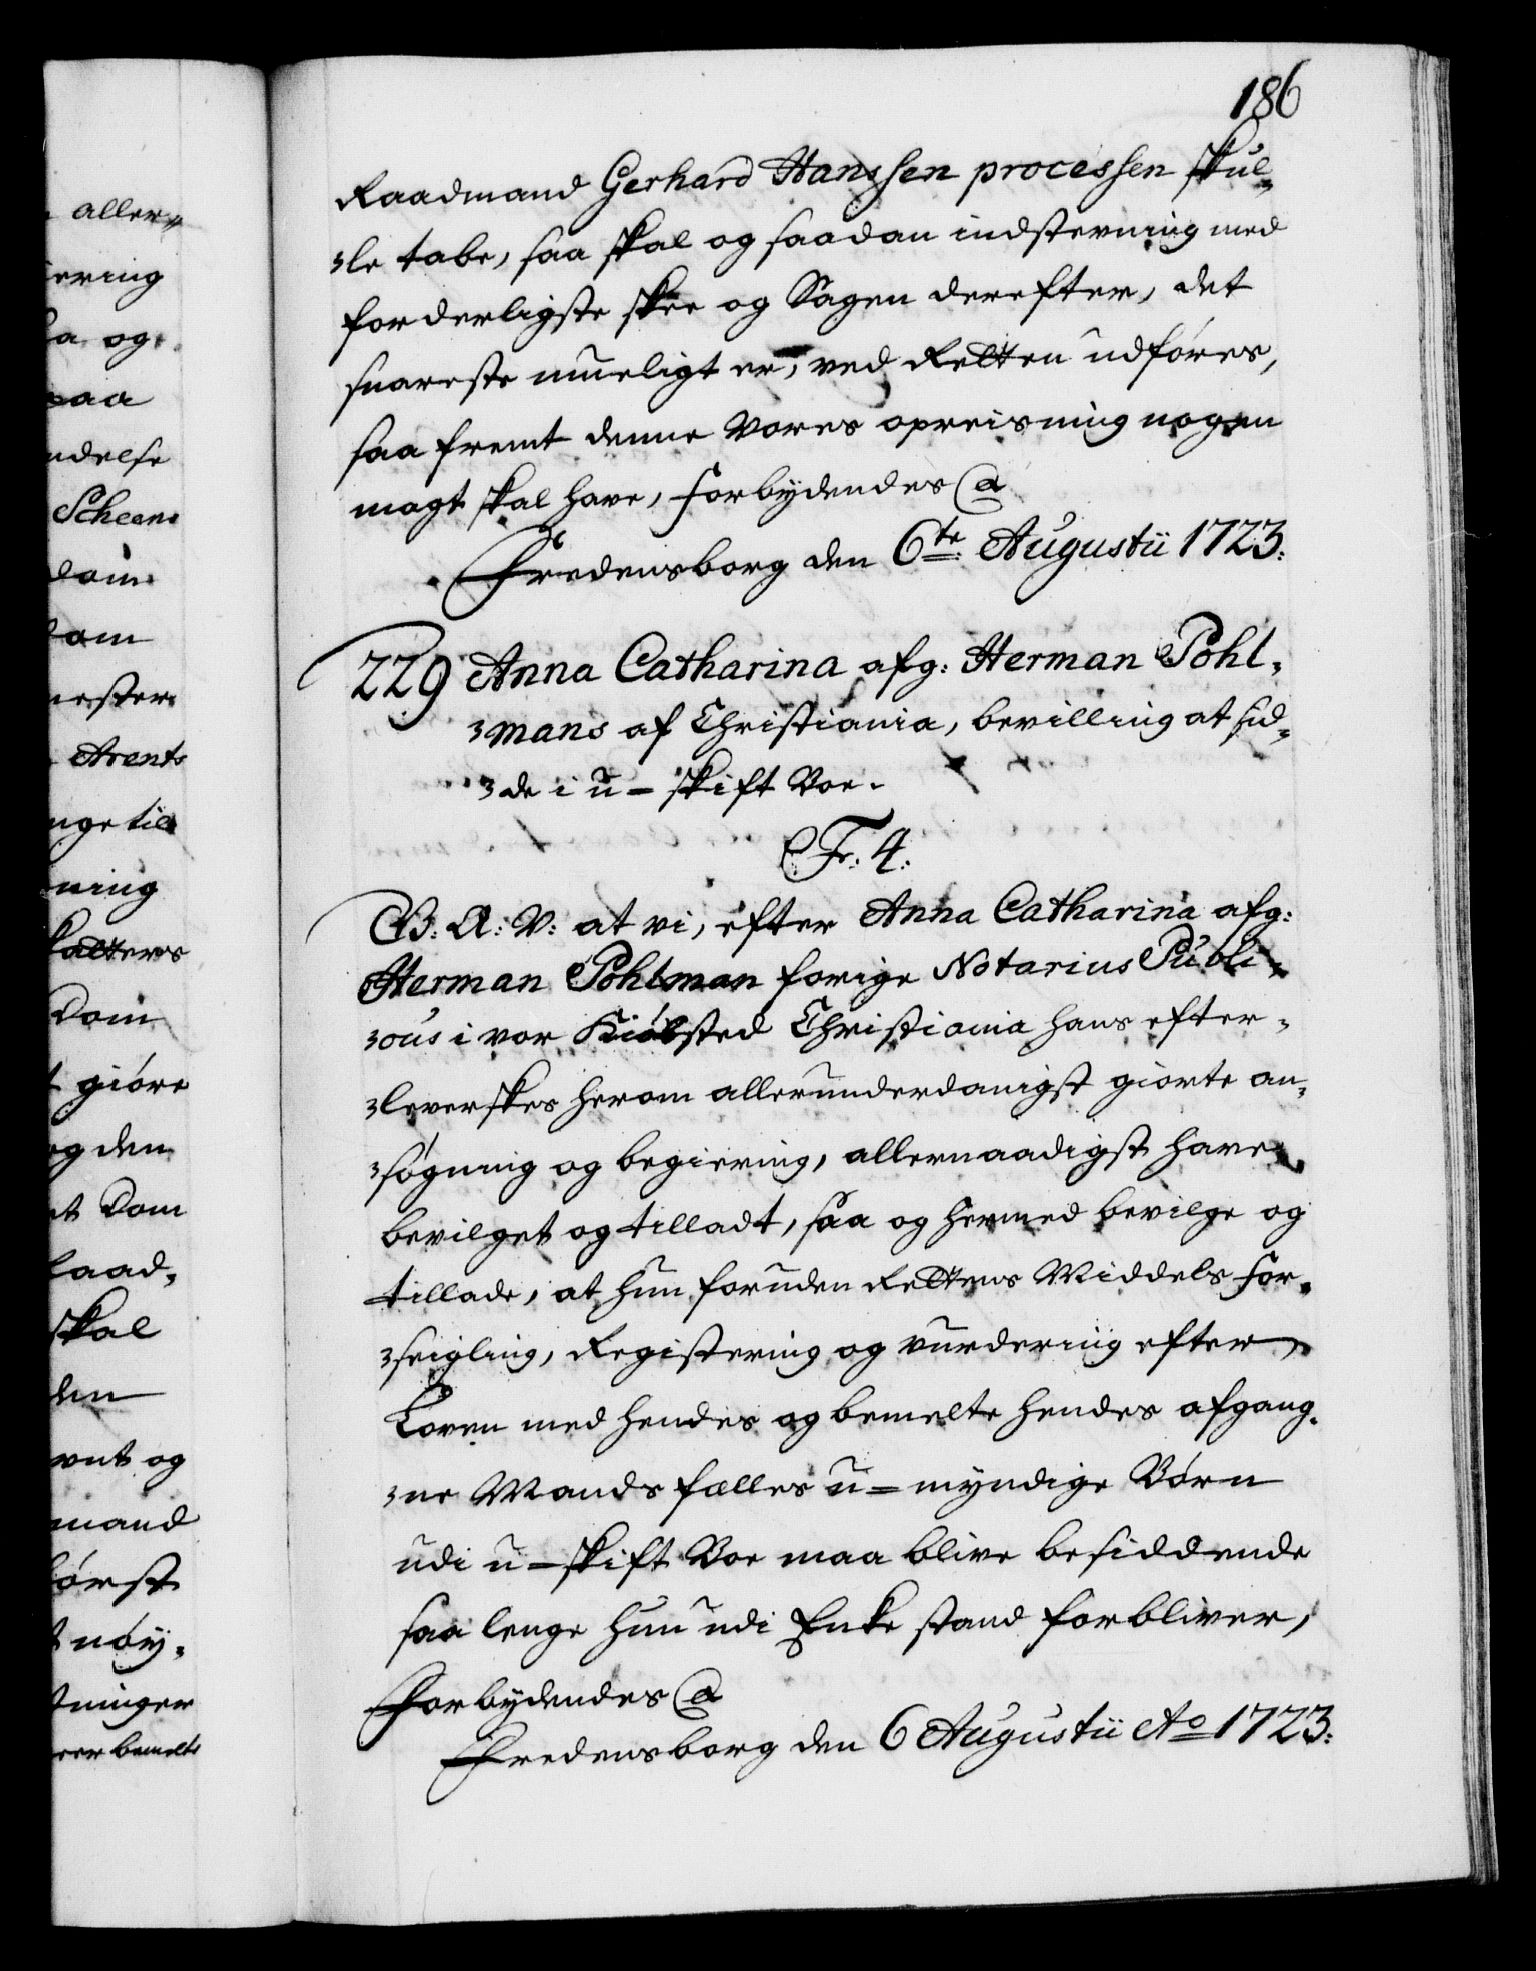 186
Raadmand Gerhard Hanssen processen skul„
„le tabe, saa skal og saadan indstevning med
forderligste skee og Sagen derefter, det
snareste mueligt er, ved Retten udføres,
saa fremt denne Vores opreisning nogen
magt skal have, forbydendes @
Fredensborg den 6te Augustii 1723.
229 Anna Catharina afg: Herman Pohl„
„mans af Christiania, bevilling at sid„
„de i u-skift Boe.
Fr: 4.
G: A: V: at vi, efter Anna Catharina afg:
Herman Pohlman forige Notarius Publi„
„cus i vor Kiøbsted Christiania hans efter„
„leverskes herom allerunderdanigst giorte an„
„søgning og begiering, allernaadigst have
bevilget og tilladt, saa og hermed bevilge og
tillade, at hun foruden Rettens Middels for„
„seigling, Registering og vurdering efter
Loven med hendes og bemelte hendes afgang„
„ne Mands fælles u-myndige Børn
udi u-skift Boe maa blive besiddende
saa lenge hun udi Enke stand forbliver,
Forbydendes @
Fredensborg den 6 Augustii Ao 1723.
aller„
ering
og
paa
ndelse
Scheens
dom
dom
mester
Arents
nge til
ning
Dom
giøre
og den
Dom
Raad„
skal
den
og
mand
først
nøy„
tninger
bemelte